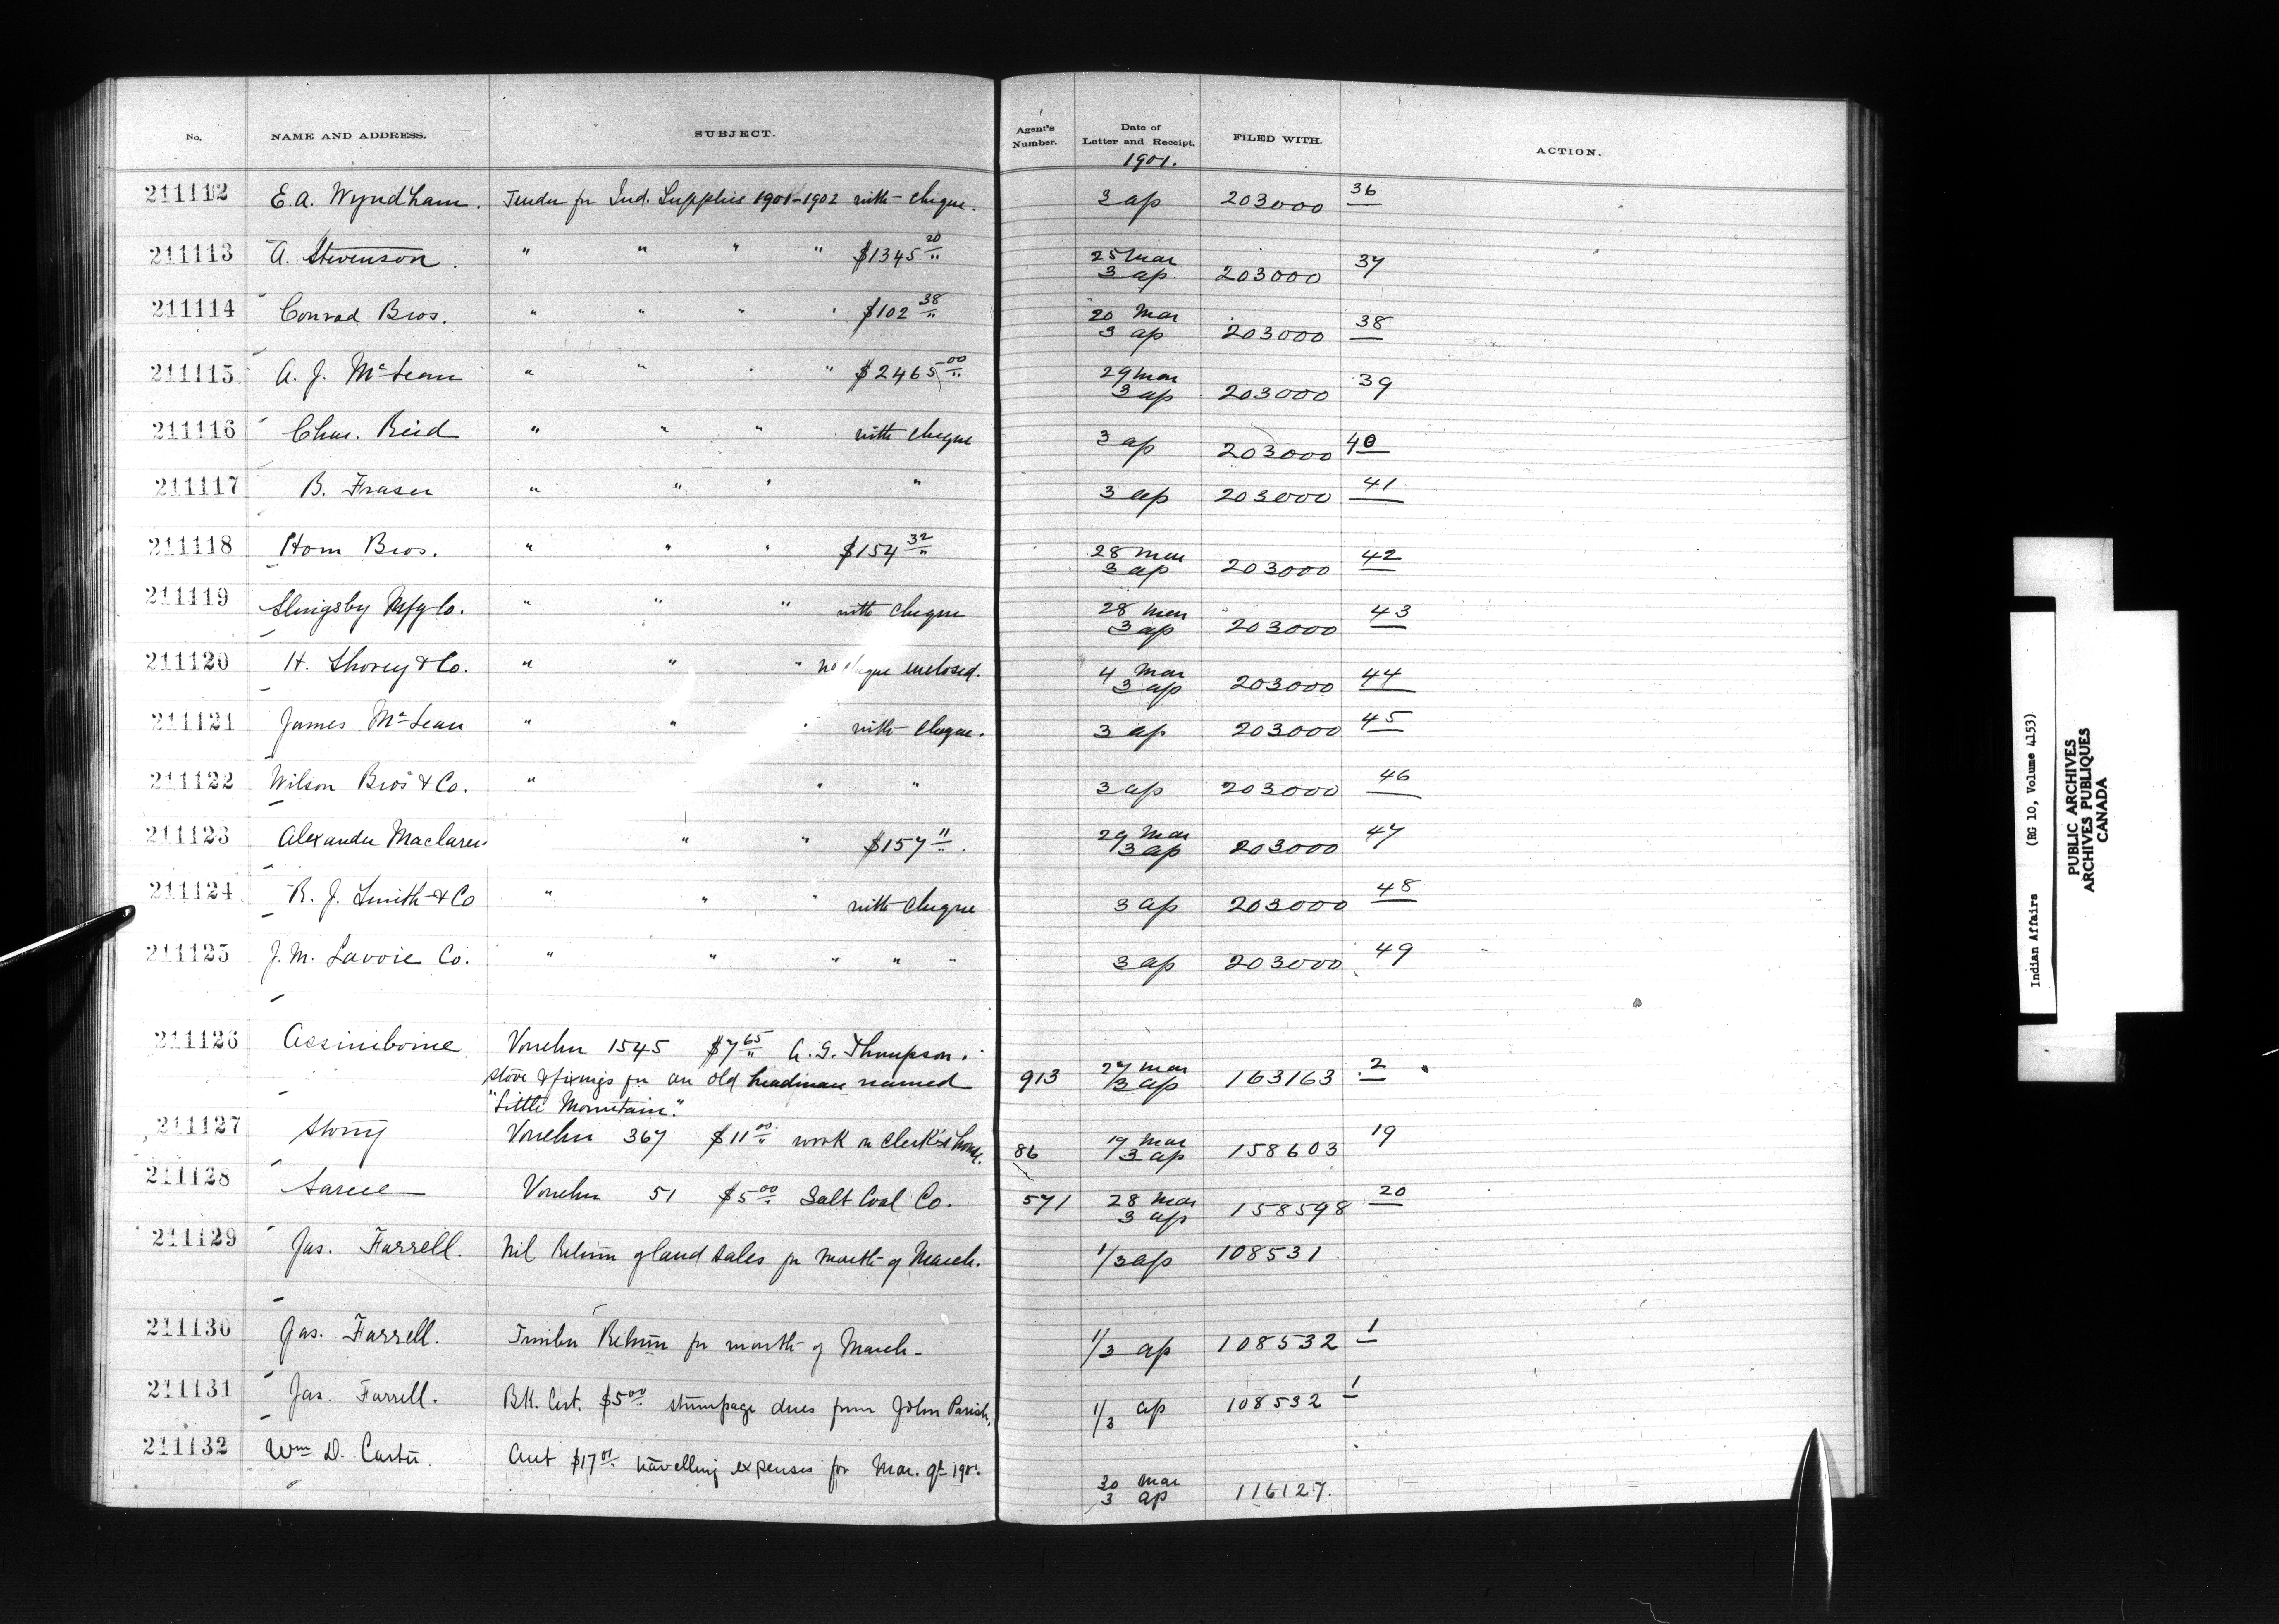 No. NAME AND ADDRESS. SUBJECT. Agent's Number. Date of Letter and Receipt. FILED WITH. ACTION.
1901.
211112 E. A. Wyndham. Tender for Ind. Supplies 1901-1902 with cheque. 3 ap 203000 36
211113 A. Stevenson. " " " " $1345 20 25 Mar 3 ap 203000 37
211114 Conrad Bros. " " " " $102 38 20 Mar 3 ap 203000 38
211115 A. J. McLean " " " " $2465 00 29 Mar 3 ap 203000 39
211116 Chas. Reid " " " with cheque 3 ap 203000 40
211117 B. Fraser " " " " 3 ap 203000 41
211118 Horn Bros. " " " $154 32 28 Mar 3 ap 203000 42
211119 Slingsby Mfg Co. " " " with cheque 28 Mar 3 ap 203000 43
211120 H. Shorey & Co. " " " no cheque enclosed. 4 Mar 3 ap 203000 44
211121 James McLean " " " with cheque. 3 ap 203000 45
211122 Wilson Bros & Co. " " " 3 ap 203000 46
211123 Alexander Maclaren. " " $157 11. 29 Mar 3 ap 203000 47
211124 R. J. Smith & Co " " " with cheque 3 ap 203000 48
211125 J. M. Lavoie Co. " " " " " 3 ap 203000 49
211126 Assiniboine Voucher 1545 $7 65 A. G. Thompson.
stove & fixings for an old headman named 913 27 Mar 3 ap 163163 2
"Little Mountain".
211127 Stony Voucher 367 $11 00 work on clerk's house. 86 19 Mar 3 ap 158603 19
211128 Sarcee Voucher 51 $5 00 Galt Coal Co. 571 28 Mar 3 ap 158598 20
211129 Jas. Farrell. Nil Return of land sales for month of March. 1/3 ap 108531
211130 Jas. Farrell. Timber Return for month of March. 1/3 ap 108532 1
211131 Jas. Farrell. Bk. Cert. $5 00 stumpage dues from John Parish. 1/3 ap 108532 1
211132 Wm D. Carter. Acct $17 01 travelling expenses for Mar. qt 1901. 30 Mar 3 ap 116127.
Indian Affairs (RG 10, Volume 4153)
PUBLIC ARCHIVES
ARCHIVES PUBLIQUES
CANADA